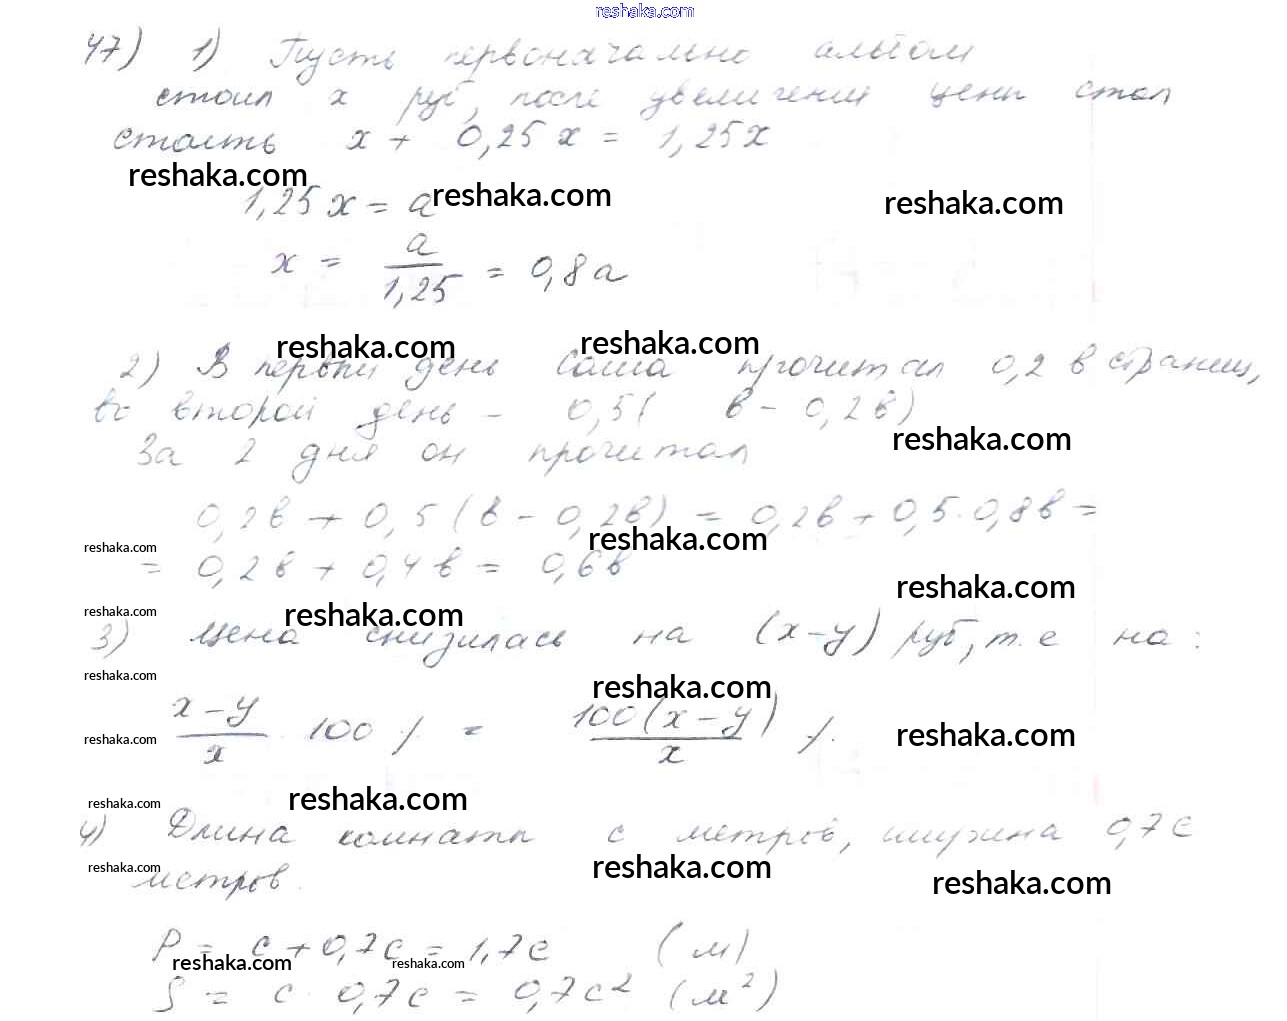 reshaka.com
47) 1) Пусть первоначально альбом
стоил x руб, после увеличения цены стал
стоить x + 0,25x = 1,25x
reshaka.com reshaka.com reshaka.com
1,25x = a
x = a/1,25 = 0,8a
reshaka.com reshaka.com
2) В первый день Саша прочитал 0,2в страниц,
во второй день - 0,5( в - 0,2в)
reshaka.com
За 2 дня он прочитал
0,2в + 0,5(в - 0,2в) = 0,2в + 0,5·0,8в =
reshaka.com reshaka.com
= 0,2в + 0,4в = 0,6в
reshaka.com
reshaka.com reshaka.com
3) Цена снизилась на (x-y) руб, т.е на:
reshaka.com reshaka.com
(x-y)/x · 100 % = 100(x-y)/x %.
reshaka.com reshaka.com
reshaka.com reshaka.com
4) Длина комнаты с метров, ширина 0,7с
reshaka.com reshaka.com reshaka.com
метров.
P = c + 0,7c = 1,7c (м)
reshaka.com reshaka.com
S = c · 0,7c = 0,7c² (м²)